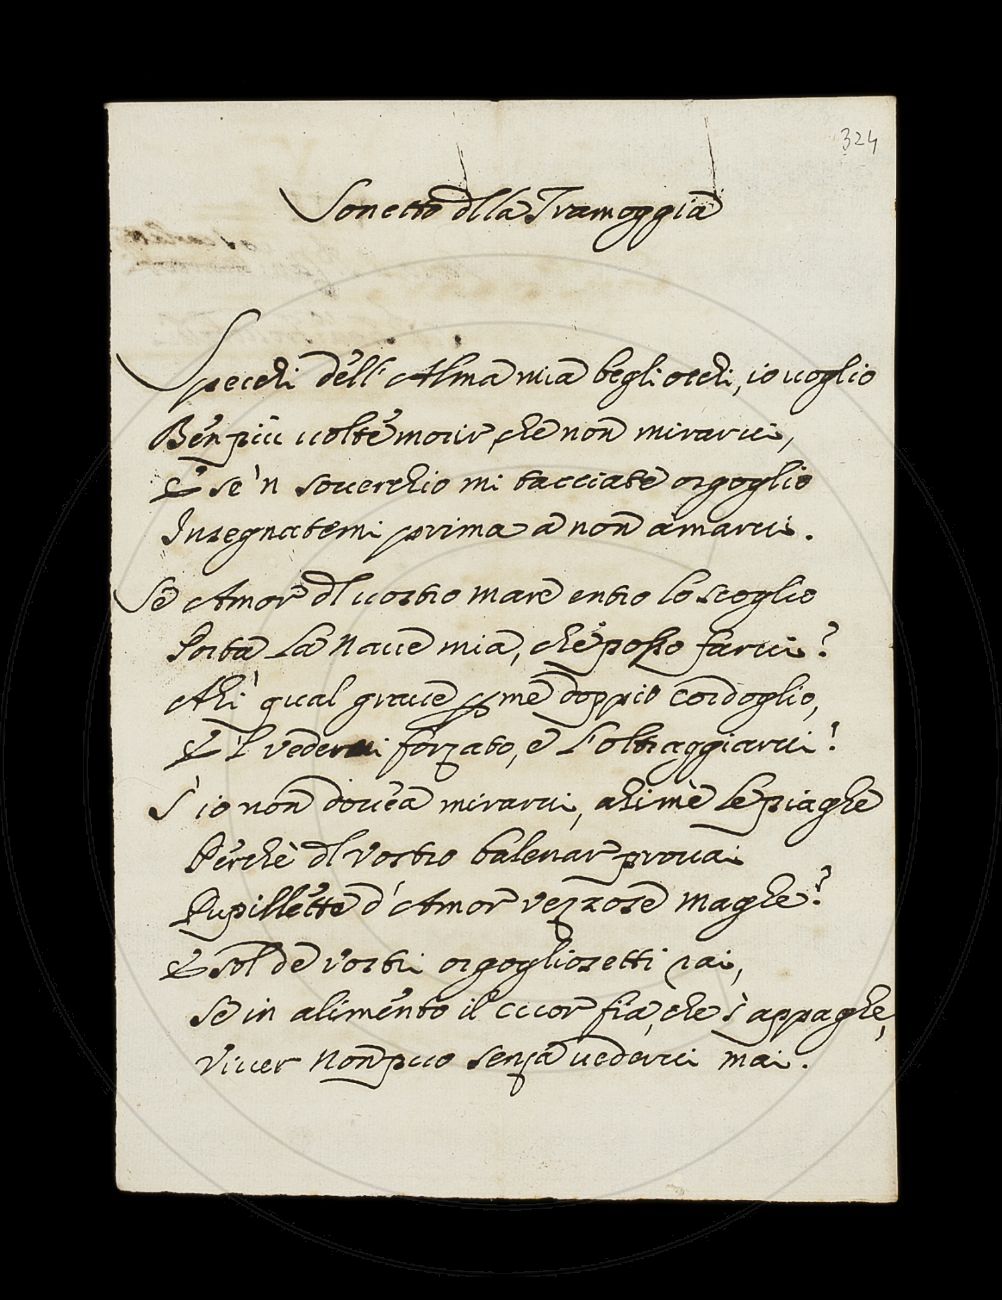 324
Sonetto dlla Tramoggia
Specchi dell' Alma mia begli occhi, io uoglio
Ben più uolte morir, che non mirarui,
E se 'n souerchio mi tacciate orgoglio
Insegnatemi prima a non amarui.
Se Amor dl uostro mare entro lo scoglio
Porta La Naue mia, che posso farui?
Ahi qual graue p me doppio Cordoglio,
E 'l vederui forzato, e l'oltraggiarui!
S' io non douea mirarui, ahimè le piaghe
Perchè dl vostro balenar prouai
Pupillette d' Amor vezzose Maghe?
E sol de vostri orgogliosetti rai,
Se in alimento il cuor fia, che s' appaghe,
Viuer Non puo senza uederui mai.